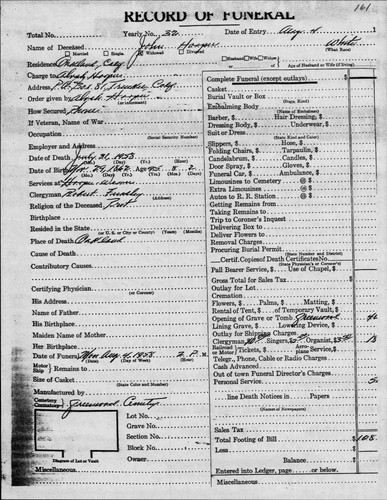 161
RECORD OF FUNERAL
Total No. Yearly No. 32 Date of Entry Aug. 4
Name of Deceased John Hooper White
Married Single Widowed Divorced Husband Wife Widow (What Race)
Residence Oakland, Calif. of Age of Husband or Wife (if living)
Charge to Hooper
Address P.O. Box 81, Calif.
Order given by Hooper
(or informant)
How Secured
If Veteran, Name of War
Occupation
(Social Security Number)
Employer and Address
Date of Death July 31, 1958
(Mo.) (Day) (Yr.) (Hour)
Date of Birth Nov. 29, 1862 Age 95 - 8 - 2
Services at
Clergyman Robert
(Address)
Religion of the Deceased Prot.
Birthplace
Resided in the State
(or U. S. or City or County) (Years) (Months)
Place of Death Oakland
Cause of Death
Contributory Causes
Certifying Physician
(or Coroner)
His Address
Name of Father
His Birthplace
Maiden Name of Mother
Her Birthplace
Date of Funeral Mon Aug 4, 1958 2 P. M.
Motor Ship } Remains to
Size of Casket
(State Color and Number)
Manufactured by
Cemetery Crematory } Greenwood Cemetery
Lot No.
Grave No.
Section No.
Block No.
Owner
Diagram of Lot or Vault
Miscellaneous
Complete Funeral (except outlays) $
Casket
Burial Vault or Box
(State, Kind)
Embalming Body
(Name of Embalmer)
Barber, $ Hair Dressing, $
Dressing, $ Underwear, $
Suit or Dress
(State Kind and Color)
Slippers, $ Hose, $
Folding Chairs, $ Tarpaulin, $
Candelabrum, $ Candles, $
Door Spray, $ Gloves, $
Funeral Car, $ Ambulance, $
Limousines to Cemetery @ $
Extra Limousines @ $
Autos to R. R. Station @ $
Getting Remains from
Taking Remains to
Trip to Coroner's Inquest
Delivering Box to
Deliver Flowers to
Removal Charges
Procuring Burial Permit
(State Number and District)
Certif. Copies of Death Certificate No.
(State Physician's or Coroner's)
Pall Bearer Service, $ Use of Chapel, $
Gross Total for Sales Tax $
Outlay for Lot
Cremation
Flowers, $ Palms, $ Matting, $
Rental of Tent, $ of Temporary Vault, $
Opening of Grave or Tomb Greenwood
Lining Grave, $ Lowering Device, $
Outlay for Shipping Charges
Clergyman, $ Singers, $ Organist, $
Railroad or Motor } Tickets, $ Aeroplane Service, $
Telegr., Phone, Cable or Radio Charges
Cash Advanced
Out of town Funeral Director's Charges
Personal Service
line Death Notices in Papers
(Names of Newspapers)
Sales Tax
Total Footing of Bill $ 108
Less
Balance $
Entered into Ledger, page or below.
Miscellaneous